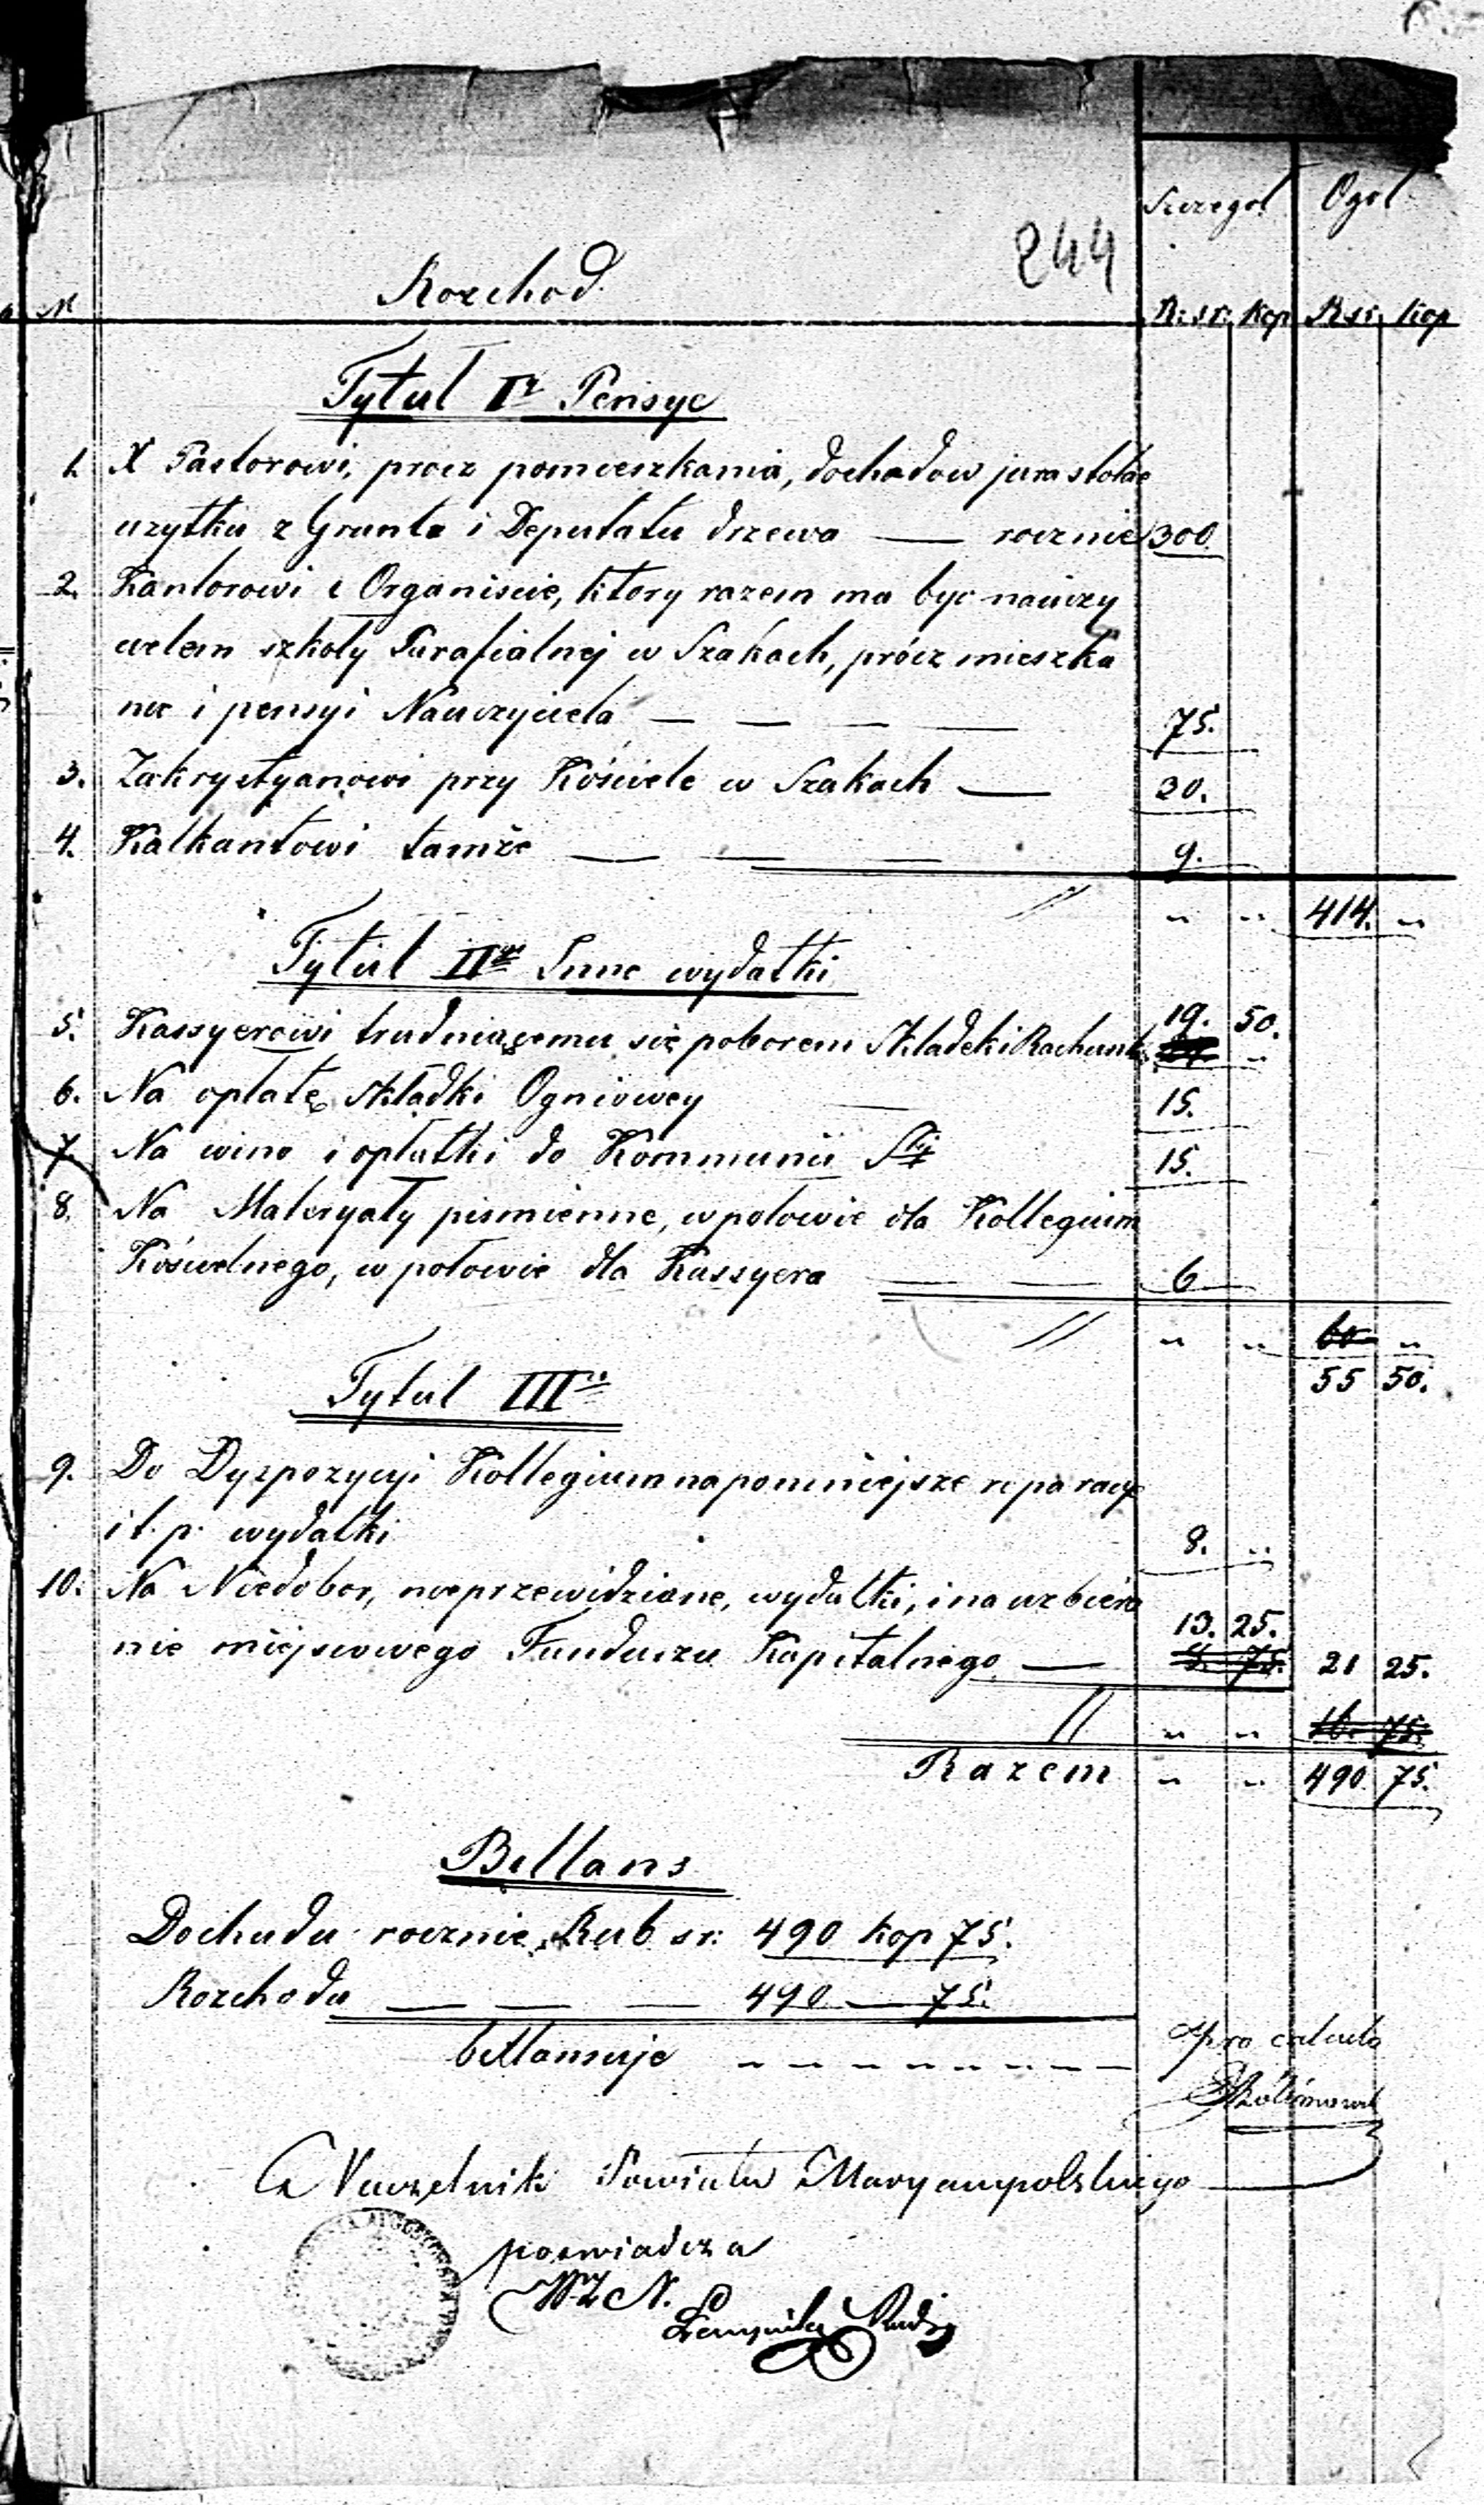 Szczegol Ogol
244
N Rozchod R: sr: Kop R sr: Kop
Tytuł I° Pensye
1. X Pastorowi, procz pomieszkania, dochodow jura stolae
uzytku z Grunta i Deputatu drzewa — rocznie 300.
2. Kantorowi i Organiscie, ktory razem ma byc nauczy
cielem szkoły Parafialnej w Szakach, prócz mieszka
nia i pensyi Nauczyciela — — — — 75.
3. Zakrystyanowi przy Kościele w Szakach — 20.
4. Kalkantowi tamże — — — 9.
// " " 414. "
Tytuł II Inne wydatki
19. 50.
5. Kassyerowi trudniącemu się poborem Składek i Rachunk. "
6. Na opłatę składki Ogniowey — 15.
7. Na wino i opłatki do Kommunii Stej 15.
8. Na Materyały pismienne, w połowie dla Kollegium
Kościelnego, w połowie dla Kassyera — — 6
// " " 60 "
55 50.
Tytuł III
9. Do Dyspozycyi Kollegium na pomniejsze reparacye
i t. p. wydatki 8. "
10. Na Niedobor, nieprzewidziane, wydatki, i na uzbiera
13. 25.
nie miejscowego Funduszu Kapitalnego — 75. 21 25.
// " " 16. 75.
Razem " " 490 75.
Billans
Dochodu rocznie Rub sr: 490 kop 75.
Rozchodu — — — 490 — 75.
billansuje
pro calculo
Naczelnik Powiatu Maryampolskiego
poswiadcza
WZ N.